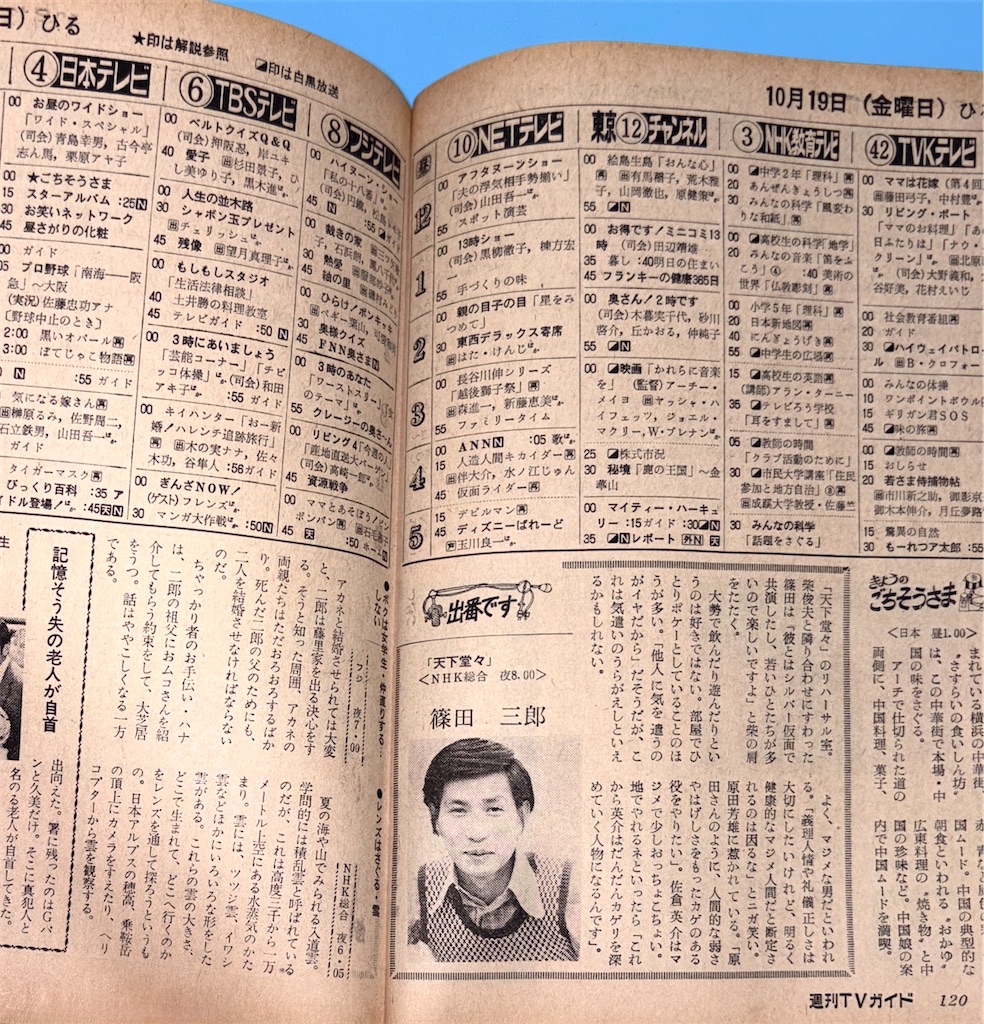 日）ひる
★印は解説参照 ◪印は白黒放送
④日本テレビ
00 お昼のワイドショー
「ワイド・スペシャル」
(司会) 青島幸男，古今亭
志ん馬，栗原アヤ子
00 ★ごちそうさま
15 スターアルバム :25Ⓝ
30 お笑いネットワーク
45 昼さがりの化粧
00 ガイド
05 プロ野球「南海―阪
急」～大阪
(実況) 佐藤忠功アナ
〔野球中止のとき〕
2:00 黒いオパール再
3:00 ぽてじゃこ物語再
:55 ガイド
気になる嫁さん再
出榊原るみ，佐野周二，
石立鉄男，山田吾一ほか
タイガーマスク再
びっくり百科 :35 ア
イドル登場！ :45天N
⑥TBSテレビ
00 ベルトクイズQ＆Q
(司会) 押阪忍，岸ユキ
40 愛子 出杉田景子，ひ
し美ゆり子，黒木進ほか
00 人生の並木路
30 シャボン玉プレゼント
出チェリッシュほか
45 残像 出望月真理子ほか
00 もしもしスタジオ
「生活法律相談」
40 土井勝の料理教室
45 テレビガイド :50 N
00 3時にあいましょう
「芸能コーナー」「チビ
ッコ体操」ほか(司会)和田
アキ子ほか
00 キイハンター「お一新
婚！ハレンチ追跡旅行」
再 出木の実ナナ，佐々
木功，谷隼人 :56ガイド
00 ぎんざNOW！
(ゲスト) フレンズほか
30 マンガ大作戦ほか :50N
⑧フジテレビ
00 ハイヌーンショー
「私の十八番」ほか
45 N :55 ガイド
00 裁きの家
30 熱愛
45 絵の里
00 ひらけ！ポンキッキ
30 奥様クイズ
45 FNN奥さま
00 3時のあなた
のテーマ」ほか
55 クレージーの奥さーん
00 リビング4「今週の
「産地直送大バーゲン」
(司会) 高崎一郎
45 資源戦争
00 ママとあそぼう！ピン
ポンパン再
45 天 :50 ホーム
10月19日（金曜日）ひ
⑩NETテレビ
昼
12
00 アフタヌーンショー
「夫の浮気相手勢揃い」
(司会) 山田吾一ほか
55 スポット演芸
1
00 13時ショー
(司会) 黒柳徹子，棟方宏
一ほか
55 手づくりの味
2
00 親の目子の目「星をみ
つめて」
30 東西デラックス寄席
出はた・けんじほか
3
00 長谷川伸シリーズ
「越後獅子祭」再
出森進一，新藤恵美ほか
55 ファミリータイム
4
00 ANN N :05 歌ほか
15 人造人間キカイダー再
出伴大介，水ノ江じゅん
45 仮面ライダー再
5
15 デビルマン再
45 ディズニーぱれーど
出玉川良一ほか
東京⑫チャンネル
00 絵島生島「おんな心」
再 出有馬稲子，荒木雅
子，山岡徹也，原健策ほか
55 ◪N
00 お得です！ミニコミ13
時 (司会) 田辺靖雄
35 暮し :40明日の住まい
45 フランキーの健康365日
00 奥さん！2時です
(司会) 木暮実千代，砂川
啓介，丘かおる，仲純子
55 ◪N
00 ◪映画「かれらに音楽
を」 (監督) アーチー・
メイヨ 出ヤッシャ・ハ
イフェッツ，ジョエル・
マクリー，W・ブレナンほか
25 ◪株式市況
30 秘境「鹿の王国」～金
華山
00 マイティー・ハーキュ
リー :15ガイド :30◪N
35 ◪Nレポート 外N 天
③NHK教育テレビ
00 ◪中学2年「理科」再
20 あんぜんきょうしつ再
30 みんなの科学「風変わ
りな和紙」再
00 ◪高校生の科学「地学」
20 みんなの音楽「笛をふ
こう」④ :40 美術の
世界「仏教彫刻」再
00 小学5年「理科」再
20 日本新地図再
40 にんぎょうげき再
55 ◪中学生の広場再
15 ◪高校生の英語再
(講師) アラン・ターニー
35 ◪テレビろう学校
「耳をすまして」再
05 ◪教師の時間
「クラブ活動のために」
30 ◪市民大学講座「住民
参加と地方自治」⑧再
出成蹊大学教授・佐藤竺
30 みんなの科学
「話題をさぐる」
㊷TVKテレビ
00 ママは花嫁（第4回
出藤田弓子，中村豊ほか
30 リビング・ポート
「ママのお料理」「あし
日ふたりは」「ナウ・
クリーン」ほか 出北原
(司会) 大野義和，大
谷好美，花村えいじ
00 社会教育番組再
20 ガイド
30 ◪ハイウェイパトロー
ル 出B・クロフォー
00 みんなの体操
10 ワンポイントボウル
15 ギリガン君SOS
45 ◪味の旅再
00 ◪教師の時間再
15 おしらせ
20 若さま侍捕物帖
出市川新之助，御影京
御木本伸介，月丘夢路
15 驚異の自然
30 もーれつア太郎 :55
記憶そう失の老人が自首
出向えた。署に残ったのはGパ
ンと久美だけ。そこに真犯人と
名のる老人が自首してきた。
●ボクは女学生・仲直りする・
しない
フジ 夜7・00
アカネと結婚させられては大変
と、二郎は藤里家を出る決心をす
る。そうと知った周囲、アカネの
両親たちはただおろおろするばか
り。死んだ二郎の父のためにも、
二人を結婚させなければならない
のだ。
ちゃっかり者のお手伝い・ハナ
は、二郎の祖父におムコさんを紹
介してもらう約束をして、大芝居
をうつ。話はややこしくなる一方
である。
●レンズはさぐる・雲
NHK総合 夜6・05
夏の海や山でみられる入道雲。
学問的には積乱雲と呼ばれている
のだが、これは高度三千から一万
メートル上空にある水蒸気のかた
まり。雲には、ツツジ雲、イワシ
雲などほかにいろいろな形をした
雲がある。これらの雲の大きさ、
どこで生まれて、どこへ行くのか
をレンズを通して探ろうというも
の。日本アルプスの穂高、乗鞍岳
の頂上にカメラをすえたり、ヘリ
コプターから雲を観察する。
出番です
「天下堂々」
<NHK総合 夜8.00>
篠田 三郎
「天下堂々」のリハーサル室。
柴俊夫と隣り合わせにすわった
篠田は「彼とはシルバー仮面で
共演したし、若いひとたちが多
いので楽しいですよ」と柴の肩
をたたく。
大勢で飲んだり遊んだりとい
うのは好きではない。部屋でひ
とりボケーとしていることのほ
うが多い。「他人に気を遣うの
がイヤだから」だそうだが、こ
れは気遣いのうらがえしといえ
るかもしれない。
よく、マジメな男だといわれ
る。「義理人情や礼儀正しさは
大切にしたいけれど、明るく
健康的なマジメ人間だと断定さ
れるのは因るな」とニガ笑い。
原田芳雄に惹かれている。「原
田さんのように、人間的な弱さ
やはげしさをもったカゲのある
役をやりたい」。佐倉英介はマ
ジメで少しおっちょこちょい。
「地でやれるネといったら「これ
から英介はだんだんカゲリを深
めていく人物になるんです」。
きょうの
ごちそうさま
<日本 昼1.00>
まれている横浜の中華街
〝さすらいの食いしん坊〟
は、この中華街で本場・中
国の味をさぐる。
アーチで仕切られた道の
両側に、中国料理、菓子、
国ムード。中国の典型的な
朝食といわれる〝おかゆ〟
広東料理の〝焼き物〟と中
国の珍味など。中国娘の案
内で中国ムードを満喫。
週刊TVガイド 120